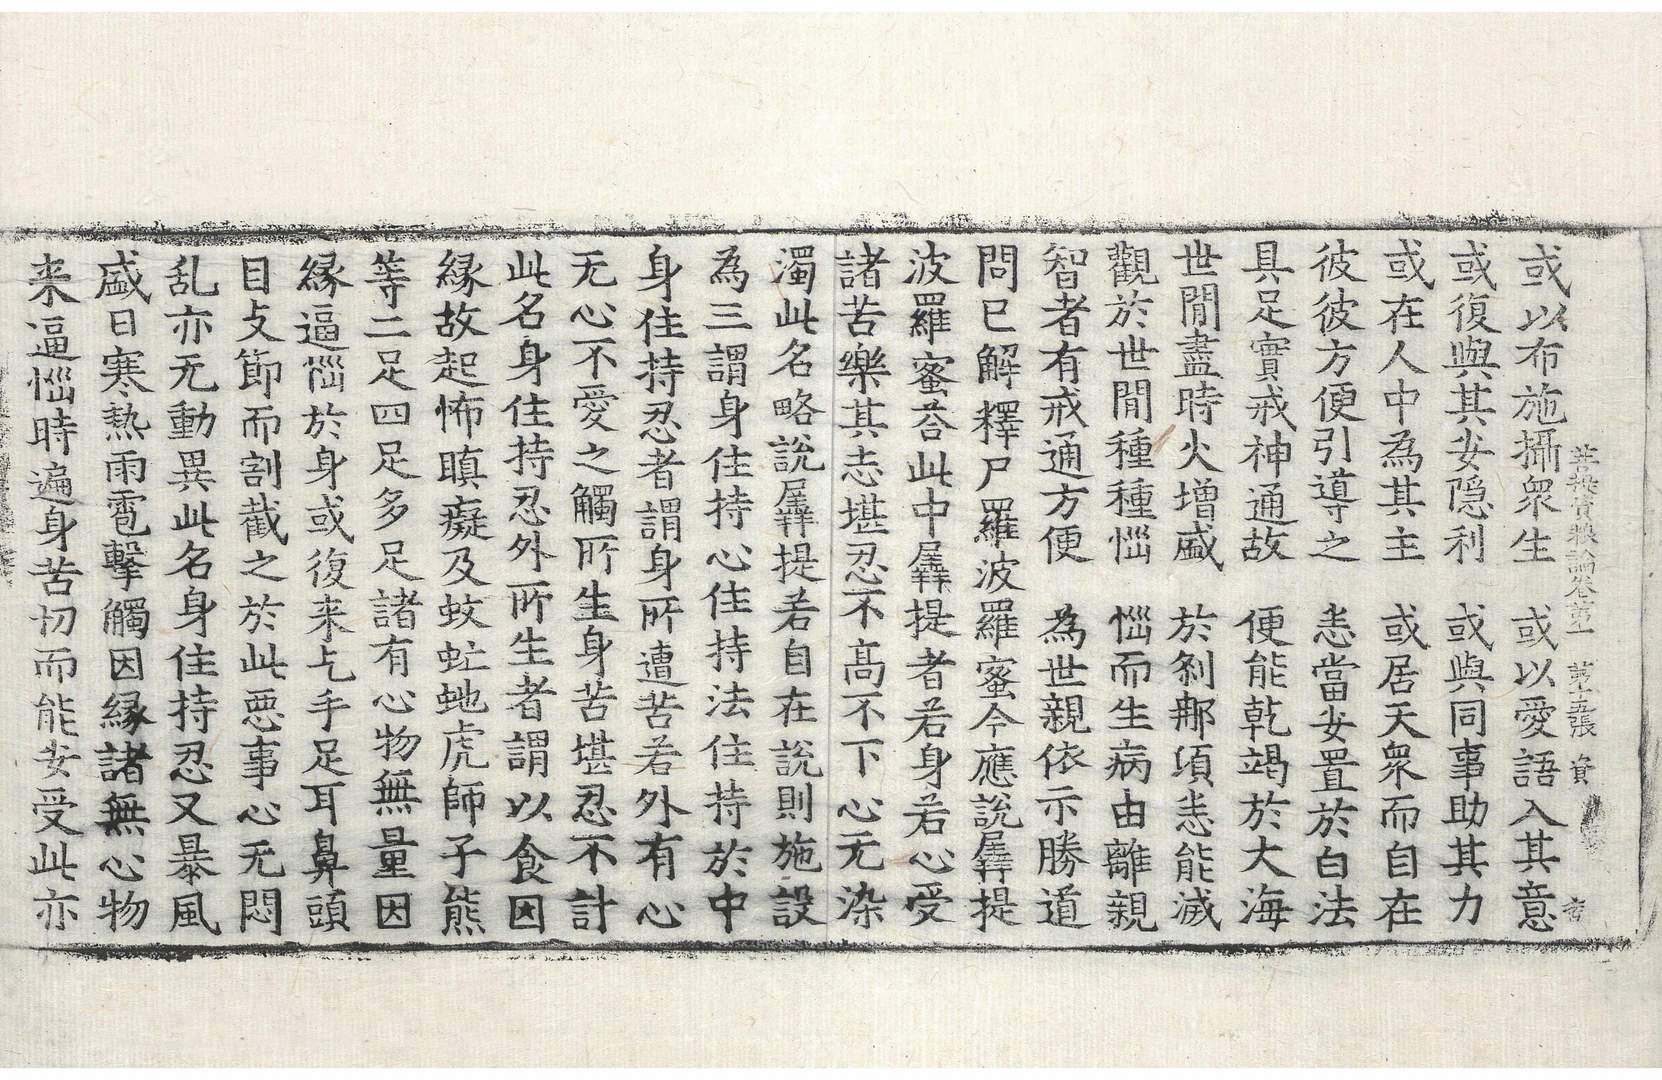 菩提資糧論卷第一 第十五張 資
或以布施攝衆生 或以愛語入其意
或復與其安隠利 或與同事助其力
或在人中為其主 或居天衆而自在
彼彼方便引導之 恚當安置於白法
具足實戒神通故 便能乾竭於大海
世閒盡時火增盛 於刹那項恚能滅
觀於世間種種惱 惱而生病由離親
智者有戒通方便 為世親依示勝道
問已解釋尸羅波羅蜜今應說羼提
波羅蜜荅此中羼提者若身若心受
諸苦樂其志堪忍不高不下心无染
濁此名略說羼提若自在說則施設
為三謂身住持心住持法住持於中
身住持忍者謂身所遭苦若外有心
无心不愛之觸所生身苦堪忍不計
此名身住持忍外所生者謂以食因
縁故起怖瞋癡及蚊虻虵虎師子熊
等二足四足多足諸有心物無量因
縁逼惱於身或復来乞手足耳鼻頭
目攴節而割截之於此悪事心无悶
乱亦无動異此名身住持忍又暴風
盛日寒熱雨雹擊觸因縁諸無心物
来逼惱時遍身苦切而能安受此亦